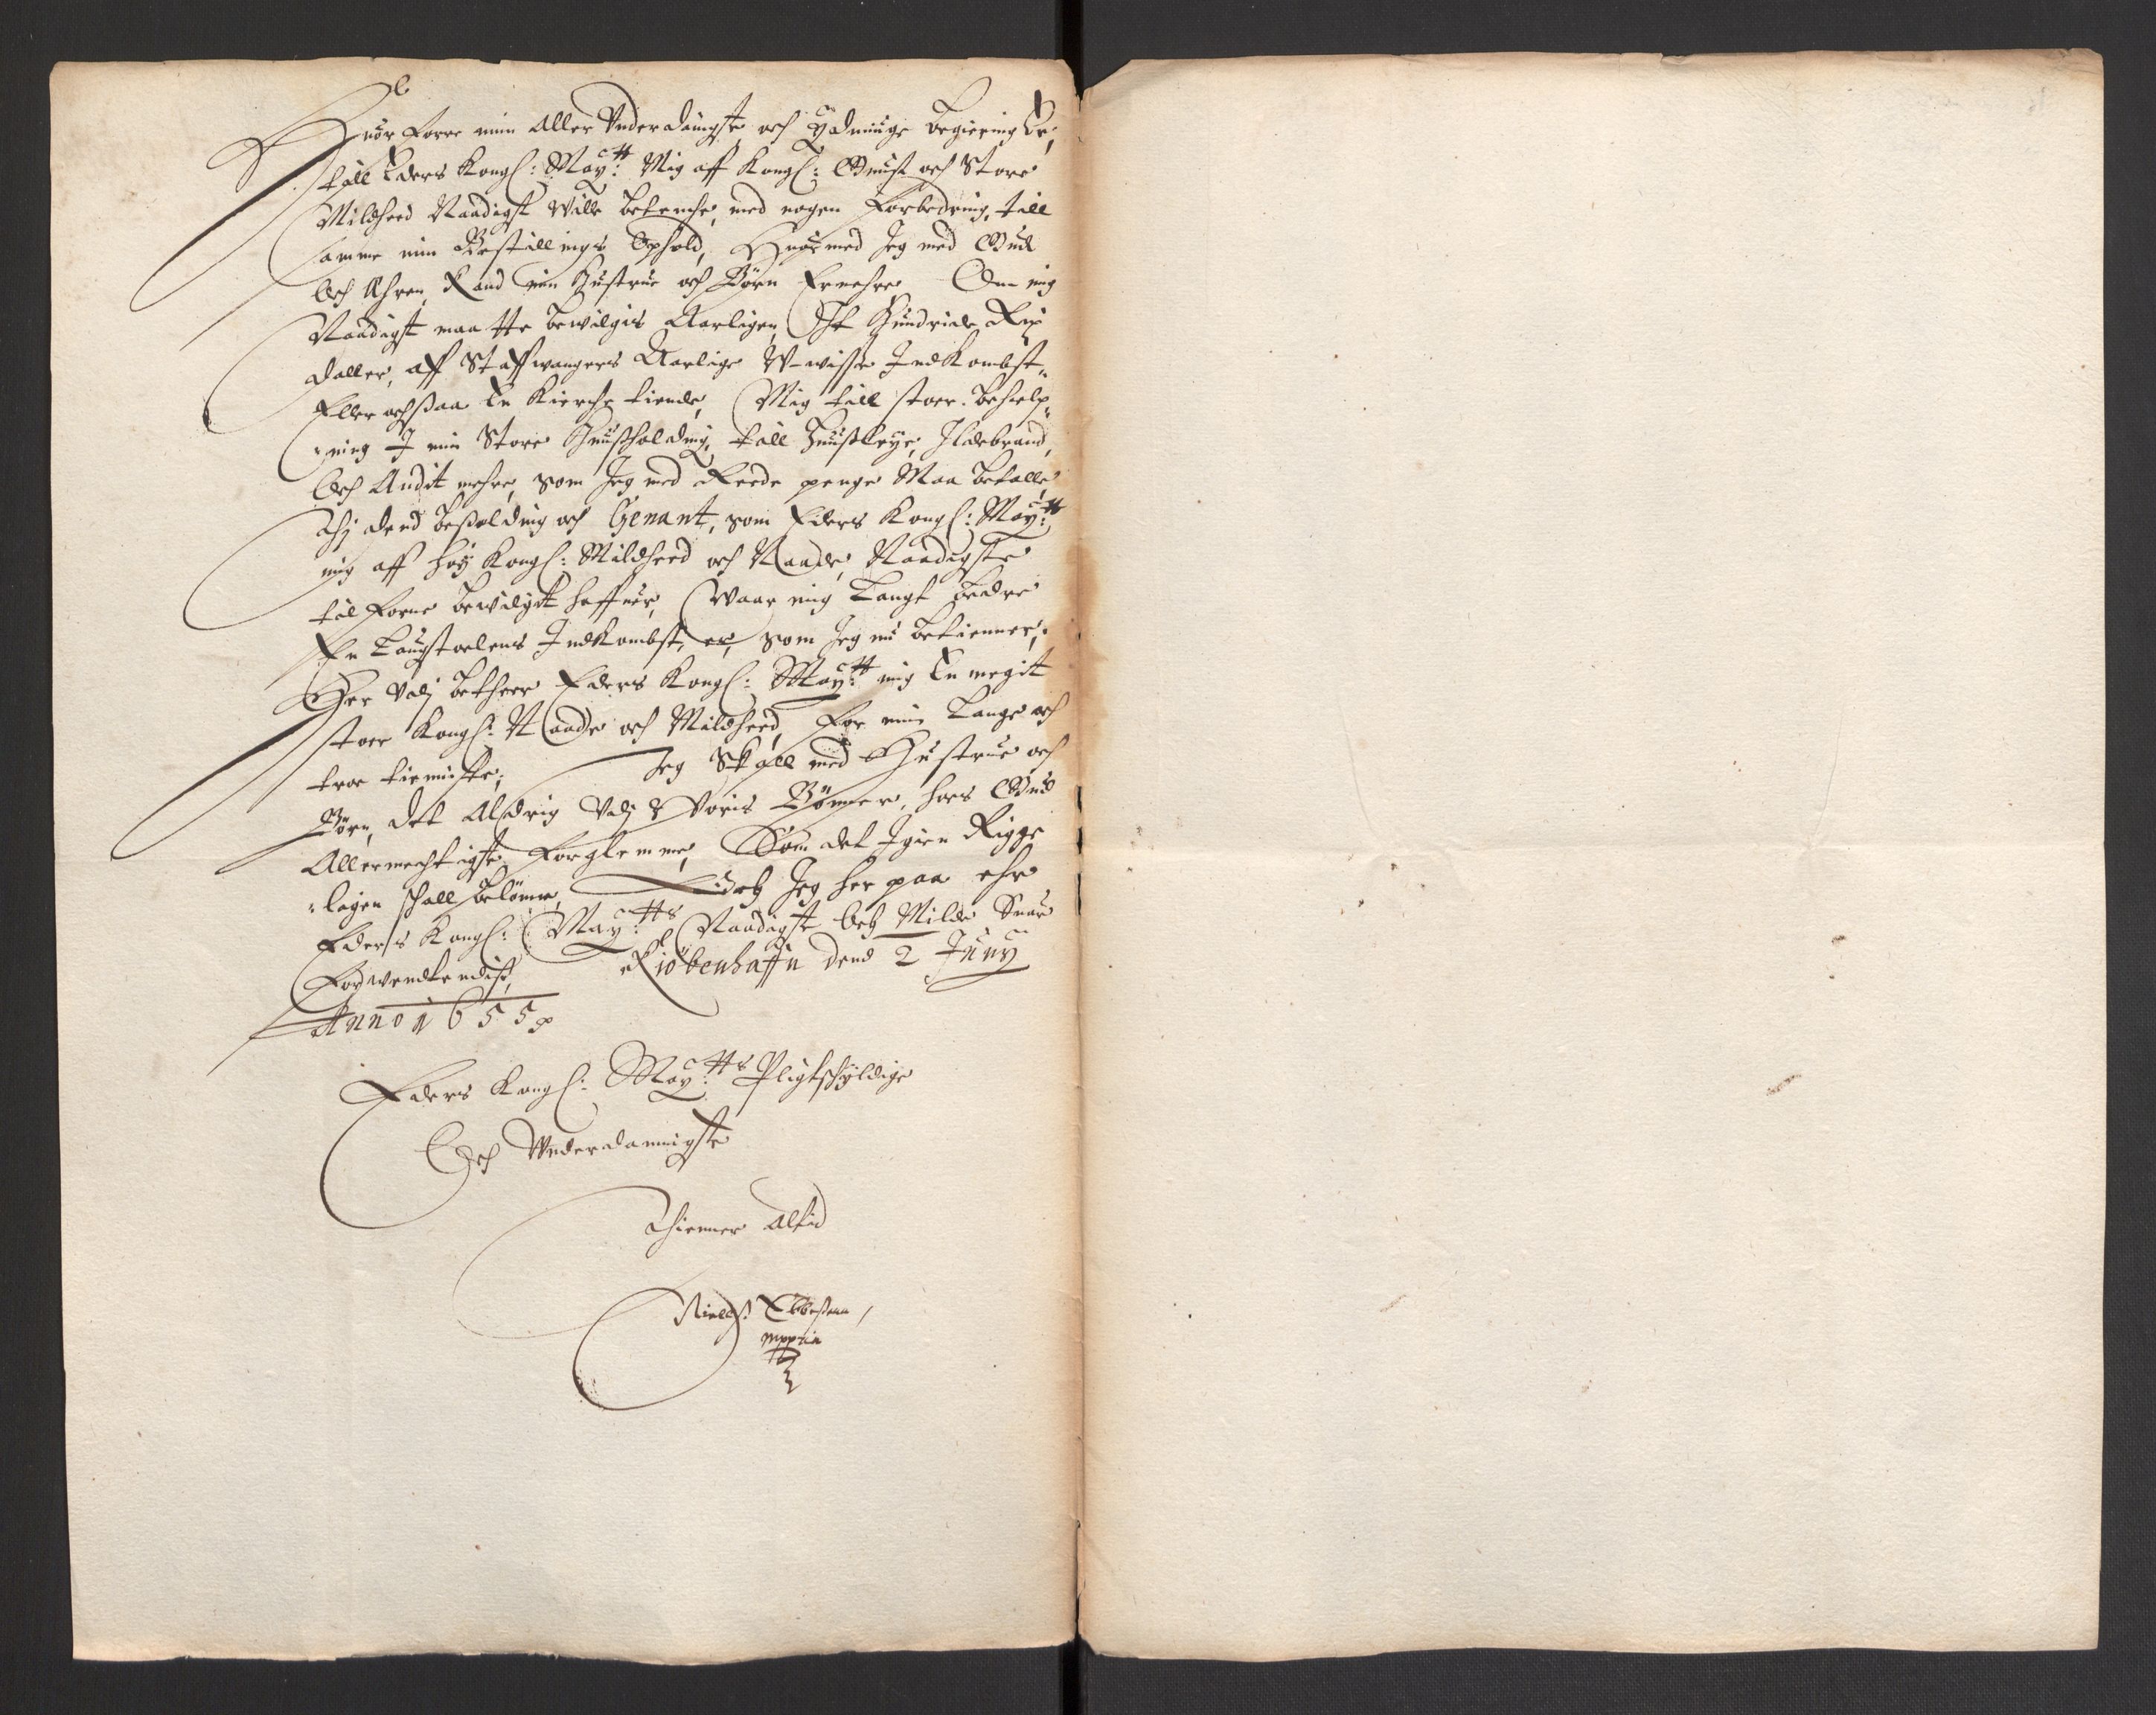 Huor Forre min Aller Vnderdanigste och Ydmiuge begiering Er,
till Eders Kongl: May:tt Mig aff Kongl: Gunst och Store
Mildhed Naadigst wille betenche, med nogen Forbedring, till
samme min Bestillings Ophold, Huormed Jeg med Gud
Och Ähren Kand min Hustrue och Börn Ernehre. Om mig
Naadigst maatte bewilgis Aarligen, Et Hundride Rix
daller, aff Staffwangers Aarlige W-wisse Indkombst,
Eller ochsaa En Kierche tiende, Mig till stoer behielp-
ning I min Store Huusholding, till Huusleye, Ildebrand,
Och Andit mehre, som Jeg med Reede penge Maa betalle
Thj dend besolding och Genant, som Eders Kongl: May:tt
mig aff höy Kongl: Mildhed och Naade, Naadigste
tilForne bewilgit haffuer, Waar mig Langt bedre
En Laugstoelens Indkombst, er, som Jeg nu betienner,
Her Vdj beteer Eders Kongl: May:tt mig En megit
stoer Kongl: Naade och Mildhed, For min Lange och
troe tienniste, Jeg Skall med Hustrue och
Börn, det Aldrig Vdj Voris Bönner, hoes Gud
Allermechtigste Forglemme, Som det Igien Rigge-
ligen schall belönne, Jeg her paa
Eders Kongl: May:tts Naadigste Och Milde Suar
Forwendtendist, Kiöbenhaffn dend 2 Juny
Anno 1655
Eders Kongl: May:tts Pligtschyldige
Och Vnderdannigste
Thienner Altid
Niells Ebbesenn,
mppria